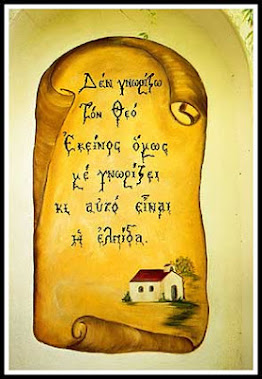 Δέν γνωρίζω
Τόν Θεό
Ἐκεῖνος ὅμως
μέ γνωρίζει
κι αὐτό εἶναι
ἡ ἐλπίδα.